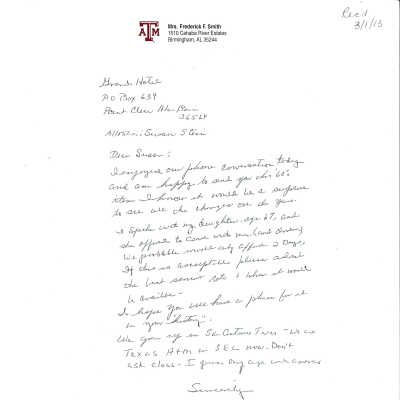 Rec'd
3/1/13
ATM
Mrs. Frederick F. Smith
1510 Cahaba River Estates
Birmingham, AL 35244
Grand Hotel
P O Box 639
Point Clear Alabama
36564
Attention: Susan Stein
Dear Susan:
I enjoyed our phone conversation today
and am happy to send you this 60's
item. I know it would be a surprise
to see all the changes over the years.
I spoke with my daughter, age 67, and
she offered to come with me (and driving)
We probably would only afford 2 days.
If this is acceptable please advise
the best senior rate & when it would
be available -
I hope you will have a place for it
in your "history".
We
Texas A+M in SEC now. Don't
ask class - I
Sincerely